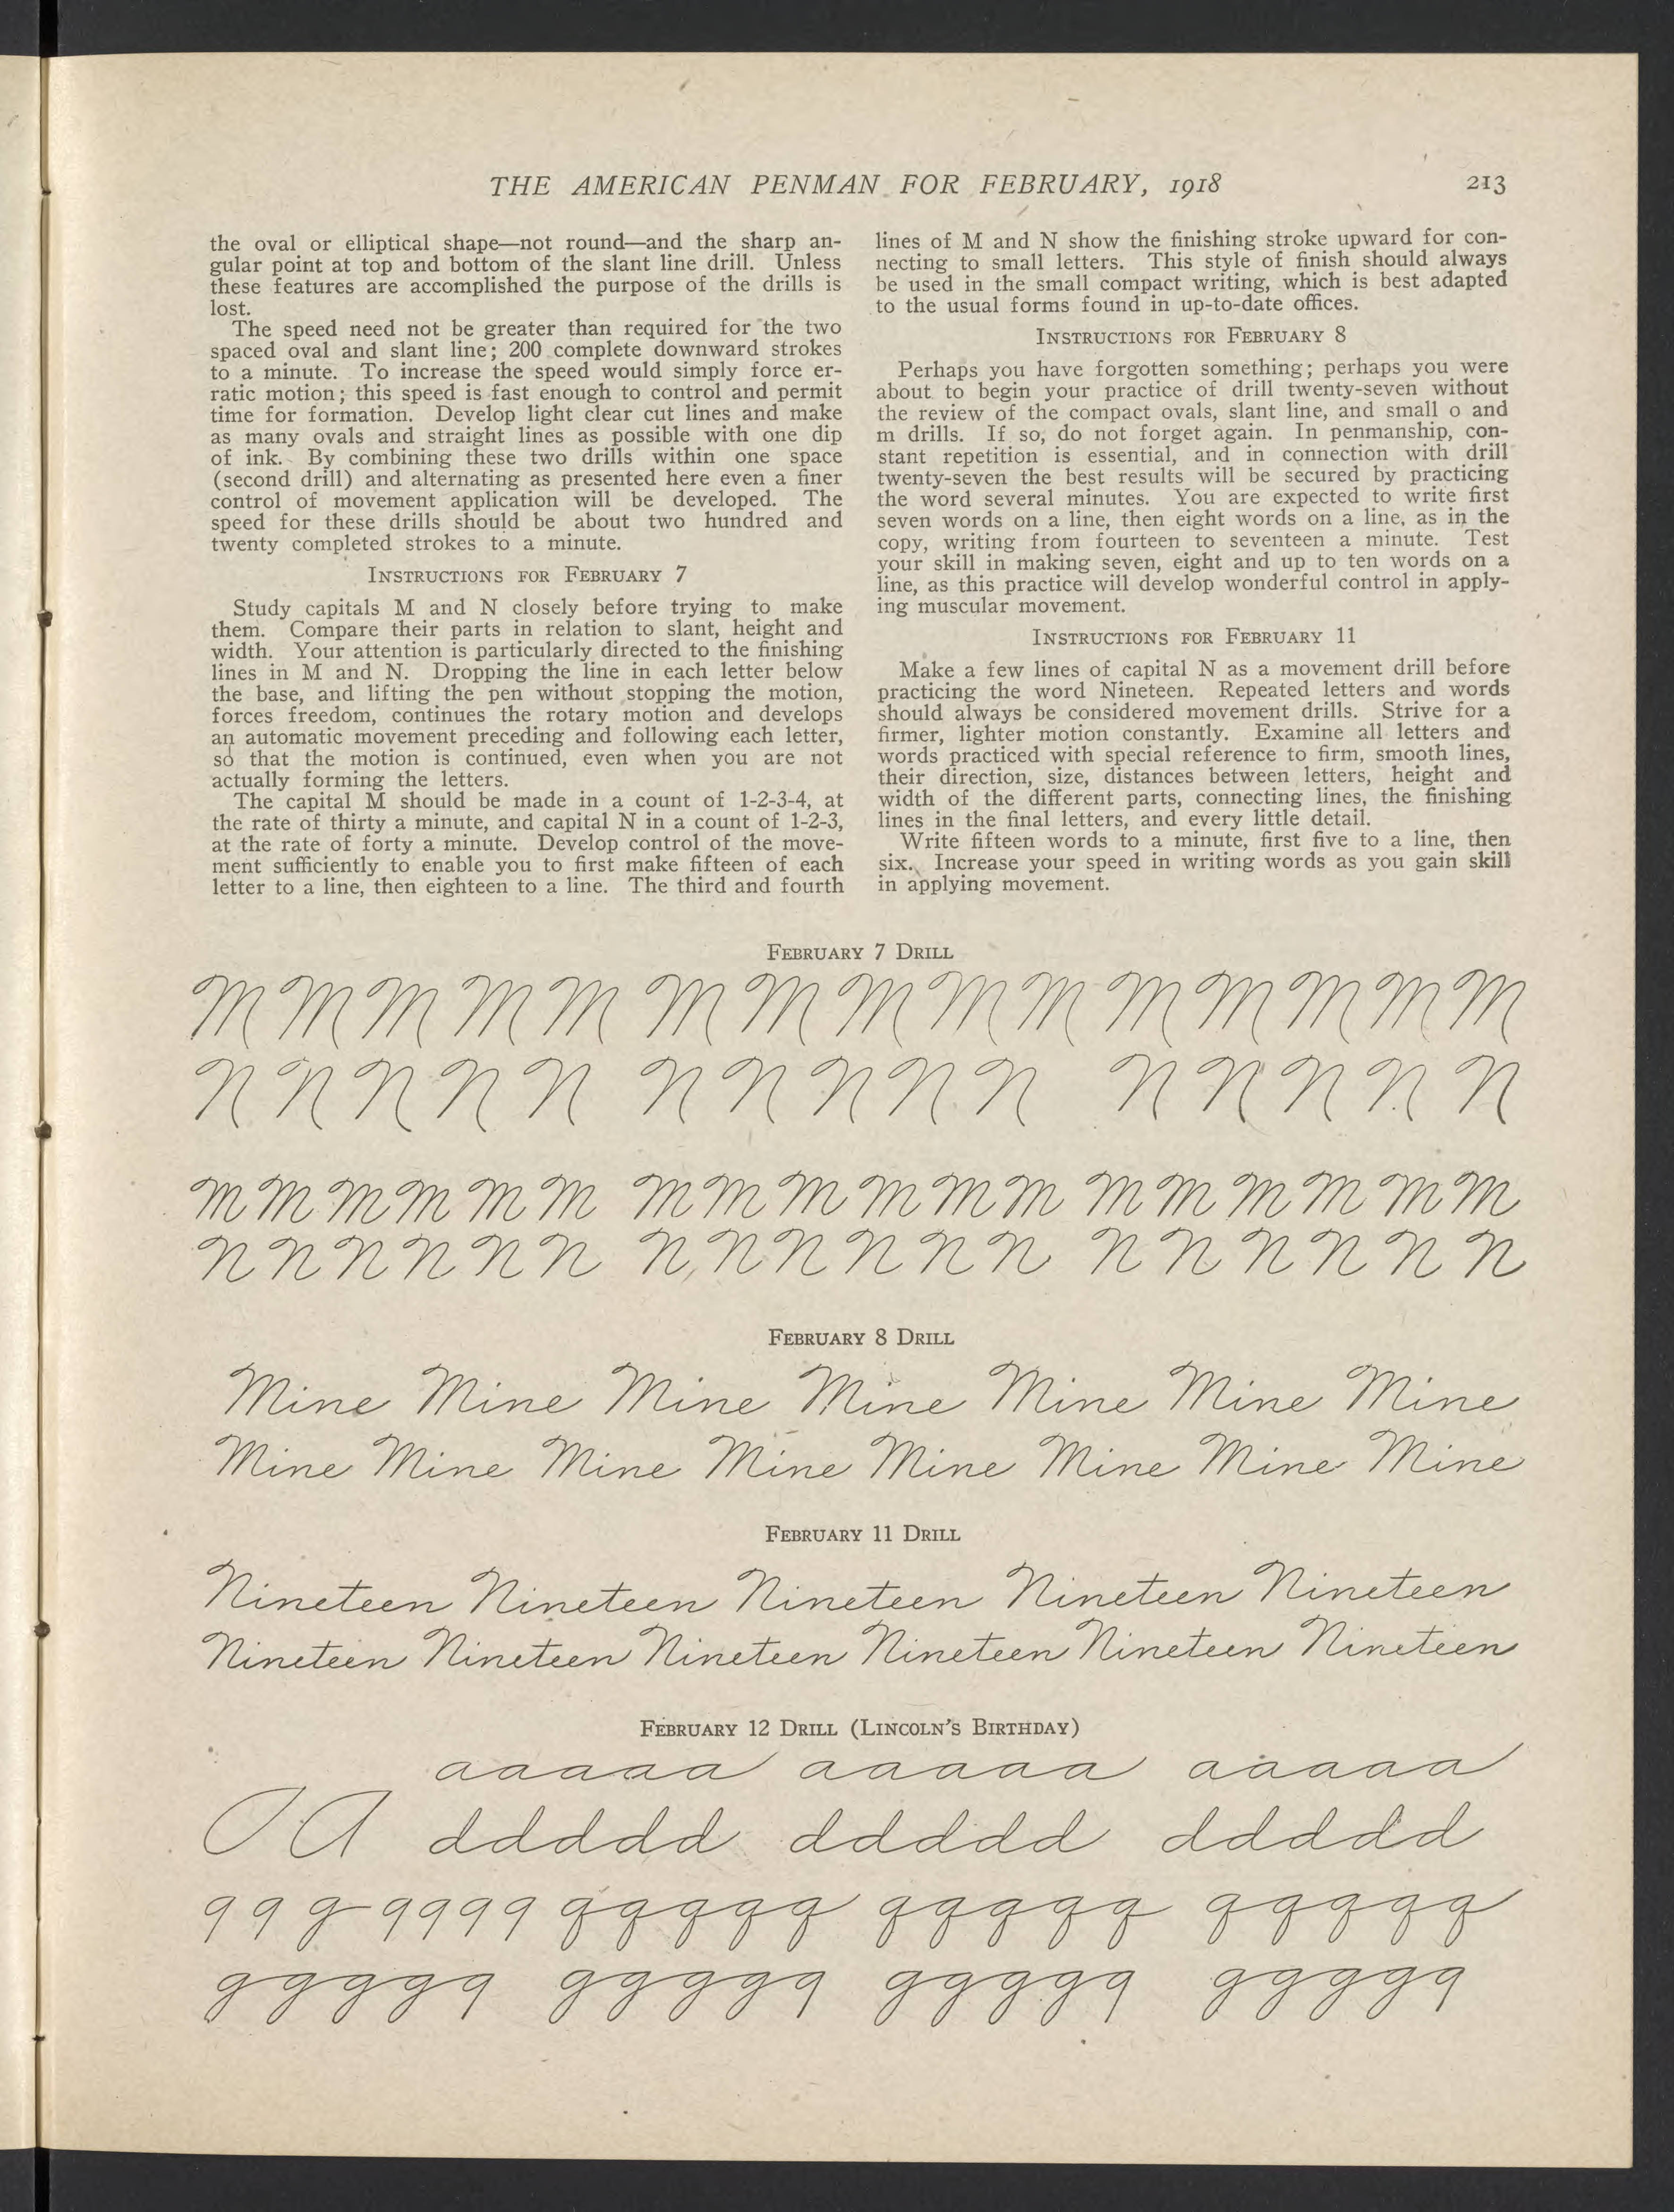 THE AMERICAN PENMAN FOR FEBRUARY, 1918
213
the oval or elliptical shape—not round—and the sharp an-
gular point at top and bottom of the slant line drill. Unless
these features are accomplished the purpose of the drills is
lost.
The speed need not be greater than required for the two
spaced oval and slant line; 200 complete downward strokes
to a minute. To increase the speed would simply force er-
ratic motion; this speed is fast enough to control and permit
time for formation. Develop light clear cut lines and make
as many ovals and straight lines as possible with one dip
of ink. By combining these two drills within one space
(second drill) and alternating as presented here even a finer
control of movement application will be developed. The
speed for these drills should be about two hundred and
twenty completed strokes to a minute.
INSTRUCTIONS FOR FEBRUARY 7
Study capitals M and N closely before trying to make
them. Compare their parts in relation to slant, height and
width. Your attention is particularly directed to the finishing
lines in M and N. Dropping the line in each letter below
the base, and lifting the pen without stopping the motion,
forces freedom, continues the rotary motion and develops
an automatic movement preceding and following each letter,
so that the motion is continued, even when you are not
actually forming the letters.
The capital M should be made in a count of 1-2-3-4, at
the rate of thirty a minute, and capital N in a count of 1-2-3,
at the rate of forty a minute. Develop control of the move-
ment sufficiently to enable you to first make fifteen of each
letter to a line, then eighteen to a line. The third and fourth
lines of M and N show the finishing stroke upward for con-
necting to small letters. This style of finish should always
be used in the small compact writing, which is best adapted
to the usual forms found in up-to-date offices.
INSTRUCTIONS FOR FEBRUARY 8
Perhaps you have forgotten something; perhaps you were
about to begin your practice of drill twenty-seven without
the review of the compact ovals, slant line, and small o and
m drills. If so, do not forget again. In penmanship, con-
stant repetition is essential, and in connection with drill
twenty-seven the best results will be secured by practicing
the word several minutes. You are expected to write first
seven words on a line, then eight words on a line, as in the
copy, writing from fourteen to seventeen a minute. Test
your skill in making seven, eight and up to ten words on a
line, as this practice will develop wonderful control in apply-
ing muscular movement.
INSTRUCTIONS FOR FEBRUARY 11
Make a few lines of capital N as a movement drill before
practicing the word Nineteen. Repeated letters and words
should always be considered movement drills. Strive for a
firmer, lighter motion constantly. Examine all letters and
words practiced with special reference to firm, smooth lines,
their direction, size, distances between letters, height and
width of the different parts, connecting lines, the finishing
lines in the final letters, and every little detail.
Write fifteen words to a minute, first five to a line, then
six. Increase your speed in writing words as you gain skill
in applying movement.
FEBRUARY 7 DRILL
M M M M M M M M M M M M M M M
N N N N N N N N N N N N N N N
M M M M M M M M M M M M M M M M M M
N N N N N N N N N N N N N N N N N N
FEBRUARY 8 DRILL
Mine Mine Mine Mine Mine Mine Mine
Mine Mine Mine Mine Mine Mine Mine Mine
FEBRUARY 11 DRILL
Nineteen Nineteen Nineteen Nineteen Nineteen
Nineteen Nineteen Nineteen Nineteen Nineteen Nineteen
FEBRUARY 12 DRILL (LINCOLN'S BIRTHDAY)
aaaaa aaaaa aaaaa
ddddd ddddd ddddd
9 9 g 9 9 9 9 qqqqq qqqqq qqqqq
ggggg ggggg ggggg ggggg